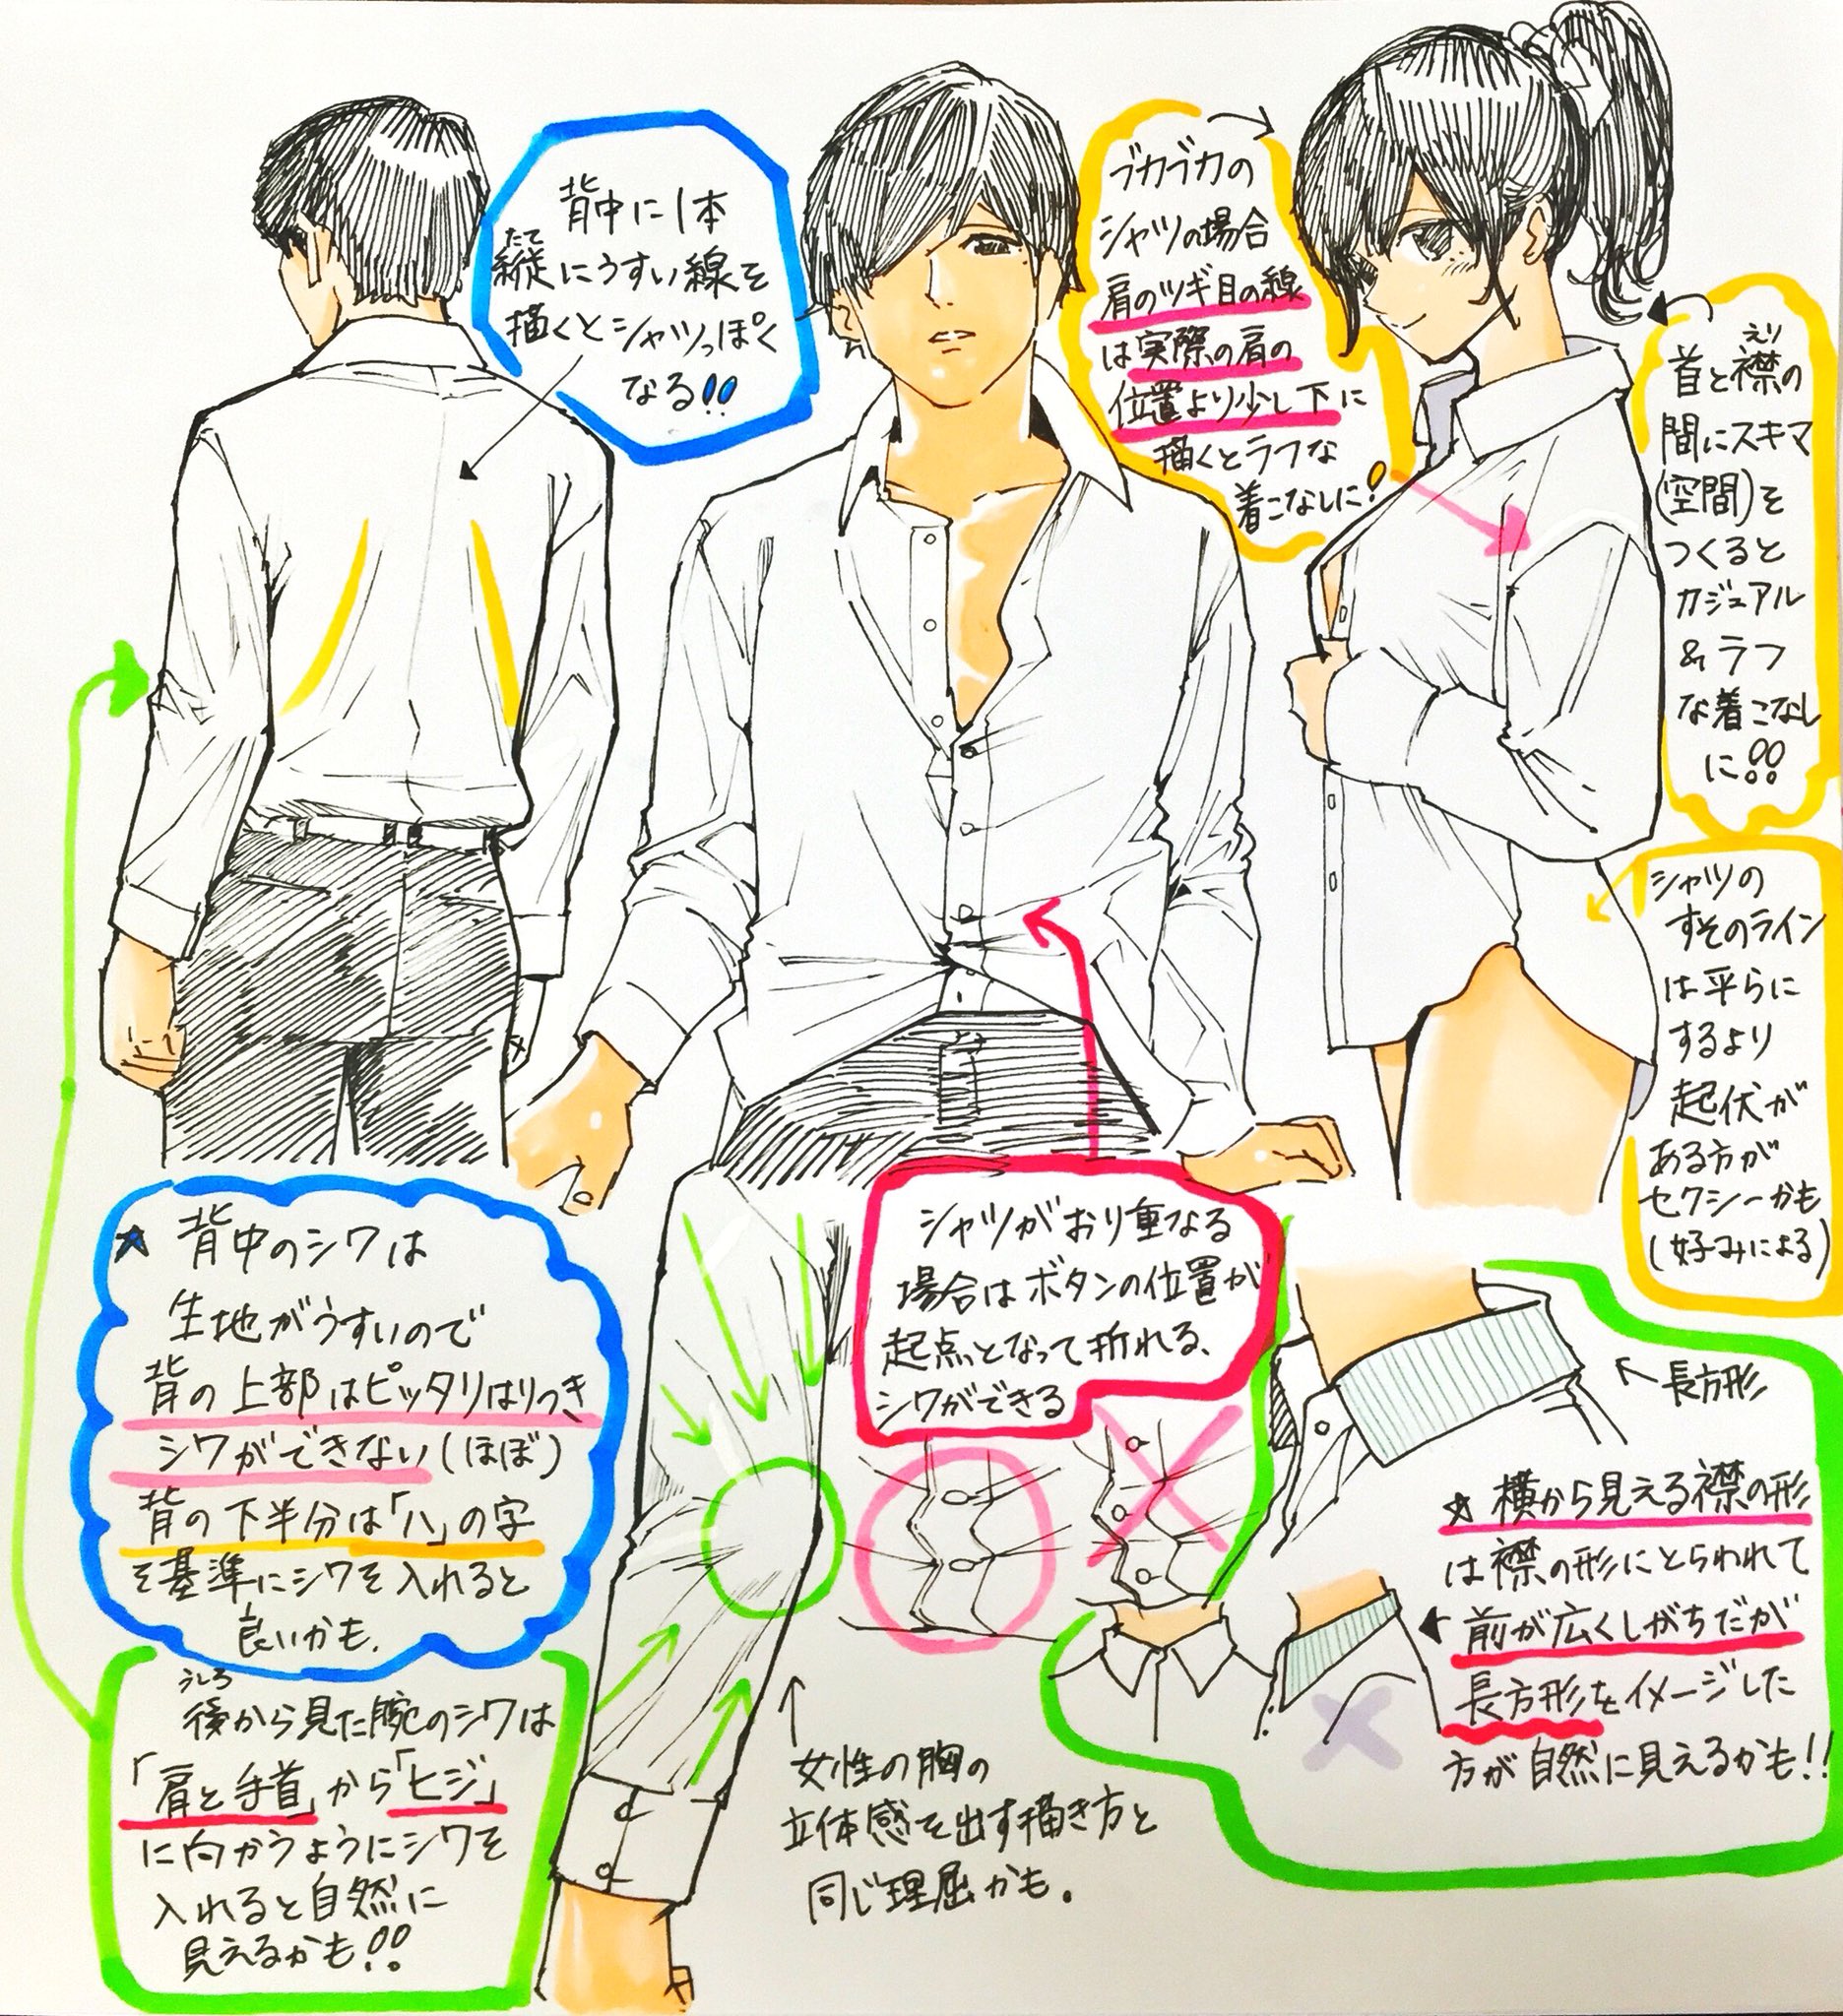 背中に1本
たて
縦にうすい線を
描くとシャツっぽく
なる!!
ブカブカの
シャツの場合
肩のツギ目の線
は実際の肩の
位置より少し下に
描くとラフな
着こなしに!
えり
首と襟の
間にスキマ
(空間)を
つくると
カジュアル
&ラフ
な着こなし
に!!
シャツの
すそのライン
は平らに
するより
起伏が
ある方が
セクシーかも
(好みによる)
☆背中のシワは
生地がうすいので
背の上部はピッタリはりつき
シワができない(ほぼ)
背の下半分は「ハ」の字
を基準にシワを入れると
良いかも.
うしろ
後から見た腕のシワは
「肩と手首」から「ヒジ」
に向かうようにシワを
入れると自然に
見えるかも!!
シャツがおり重なる
場合はボタンの位置が
起点となって折れる、
シワができる
女性の胸の
立体感を出す描き方と
同じ理屈かも.
長方形
☆横から見える襟の形
は襟の形にとらわれて
前が広くしがちだが
長方形をイメージした
方が自然に見えるかも!!